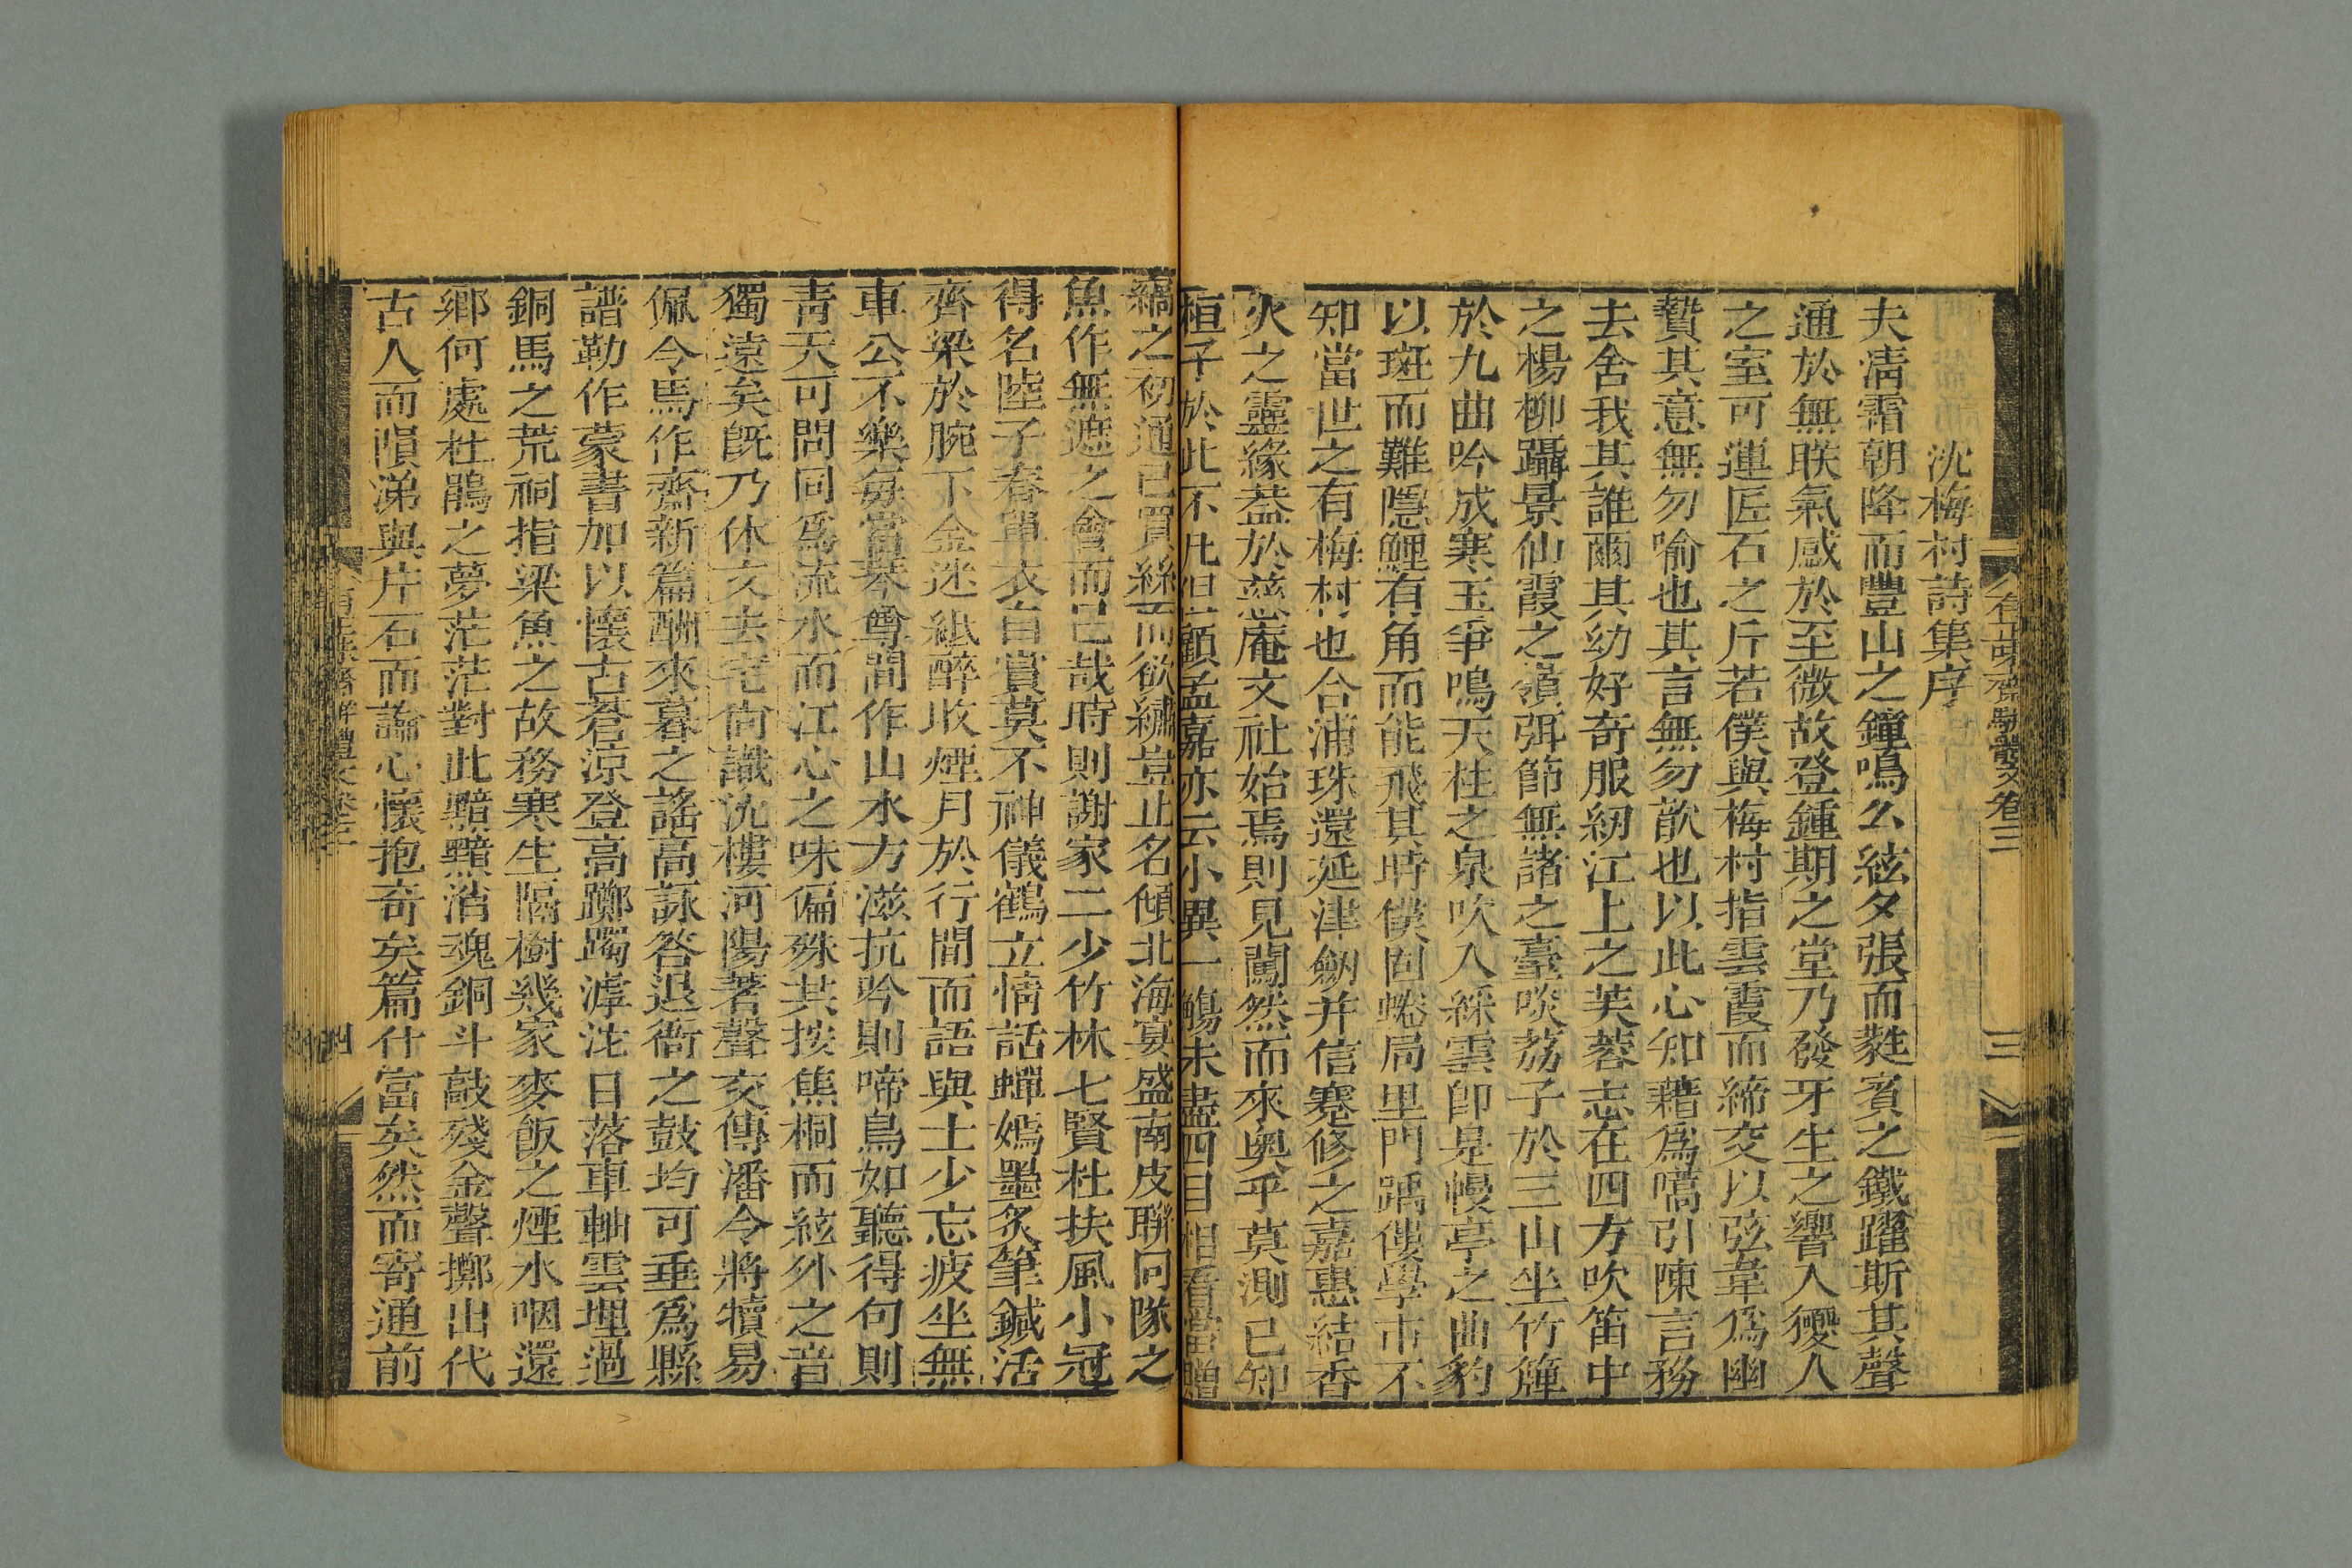 沈梅村詩集序
夫淸霜朝降而豐山之鐘鳴么絃夕張而蕤賓之鐵躍斯其聲
通於無联氣感於至微故登鍾期之堂乃發牙生之響入獿人
之室可運匠石之斤若僕與梅村指雲霞而締交以弦韋爲幽
贄其意無勿喻也其言無勿歆也以此心知藉爲嚆引陳言務
去舍我其誰爾其幼好奇服紉江上之芙蓉志在四方吹笛中
之楊柳躡景仙霞之嶺弭節無諸之臺啖荔子於三山坐竹篷
於九曲吟成寒玉爭鳴天柱之泉吹入綵雲卽是幔亭之曲豹
以斑而難隱鯉有角而能飛其時僕固蜷局里門踽僂學市不
知當世之有梅村也合浦珠還延津劒并信蹇修之嘉惠結香
火之靈緣葢於慈庵文社始焉則見闖然而來奥乎莫測已知
桓子於此不凡但顧孟嘉亦云小異一觴未盡四目相看當贈
縞之初通已買絲而欲繡豈止名傾北海宴盛南皮聯同隊之
魚作無遮之會而已哉時則謝家二少竹林七賢杜扶風小冠
得名陸子春單衣自賞莫不神儀鶴立情話蟬嫣墨炙筆鍼活
齊梁於腕下金迷紙醉收煙月於行間而語與士少忘疲坐無
車公不樂每當琴尊間作山水方滋抗吟則啼鳥如聽得句則
靑天可問同爲流水而江心之味偏殊共按焦桐而絃外之音
獨遠矣旣乃休文去宅尙識沈樓河陽著聲交傳潘令將犢易
佩令馬作齋新篇酬來暮之謠高詠答退衙之鼓均可垂爲縣
譜勒作蒙書加以懷古蒼涼登高躑躅滹沱日落車軸雲埋過
銅馬之荒祠指梁魚之故務寒生隔樹幾家麥飯之煙水咽還
鄉何處杜鵑之夢茫茫對此黯黯消魂銅斗敲殘金聲擲出代
古人而隕涕與片石而論心懷抱奇矣篇什富矣然而寄通前